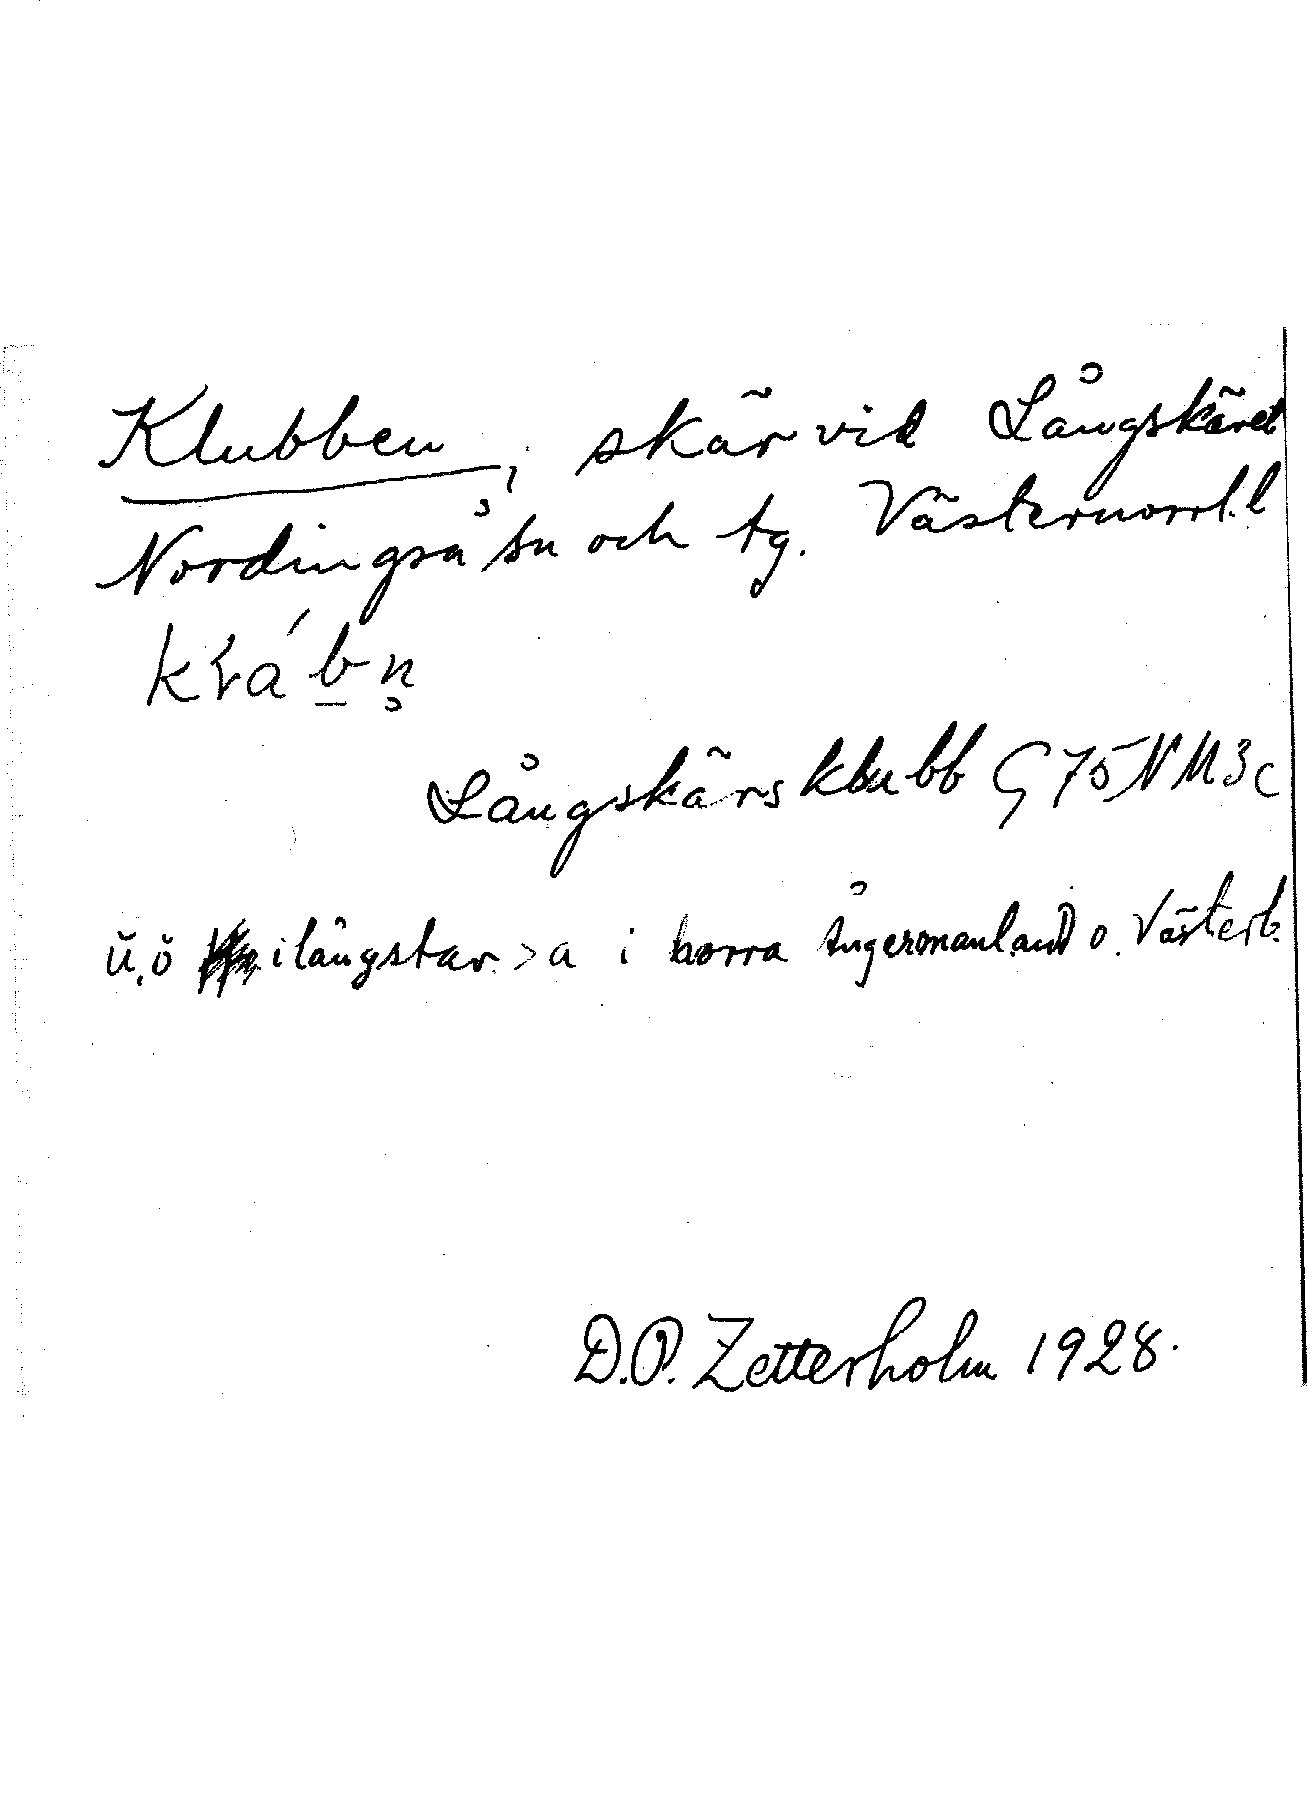 Klubben, skär vid Långskäret
Nordingrå sn och tg. Västernorrl. l
Långskärsklubb G 75 NM3c
ŭ, ŏ i långstav. > a i norra Ångermanland o. Västerb.
D.P. Zetterholm 1928.